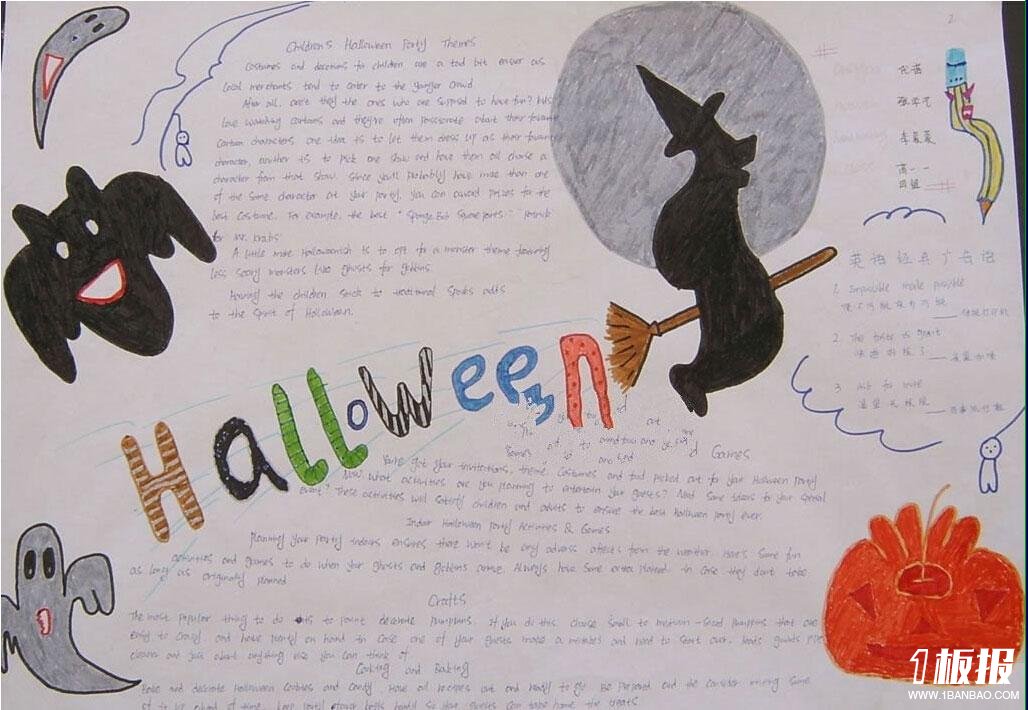 Children's Halloween Party Themes
Costumes and decorations for children are a tad bit easier as
local merchants tend to cater to the younger crowd
After all, aren't they the ones who are supposed to have fun? kids
love watching cartoons and they're often passionate about their favorite
cartoon characters one idea is to let them dress up as their favorite
character, another is to pick one show and have them all choose a
character from that show. Since you'll probably have more than one
of the same character at your party, you can award prizes for the
best costume. For example, the best "Sponge Bob Square pants" Patrick
for Mr. krabs
A little more Halloweenish is to opt for a monster theme featuring
less scary monsters like ghosts for goblins
Having the children stick to traditional Spooks adds
to the spirit of Halloween.
Halloween
Games
You've got your invitations, theme, costumes and food picked out for your Halloween Party
Now what activities are you planning to entertain your guests? Need some ideas for your special
event? These activities will satisfy children and adults to ensure the best halloween party ever.
Indoor Halloween Party Activities & Games
Planning your party indoors ensures there won't be any adverse affects from the weather. Here's some fun
activities and games to do when your ghosts and goblins arrive. Always have some extra planned in case they don't take
as long as originally planned
Crafts
The most popular thing to do is to paint decorate pumpkins. If you do this, choose small to medium-sized pumpkins that are
easy to carry, and have plenty on hand in case one of your guests makes a mistake and need to start over.
cleaner and just about anything else you can think of
Cooking and Baking
Bake and decorate Halloween cookies and candy. Have all recipes out and ready to go. Be prepared
ahead of time. keep party bags handy so your guests can take home the treats
2
李
高一一
四组
英语经典广告语
1. Impossible made possible
使不可能变为可能
佳能打印机
2. The taste is great
味道好极了
雀巢咖啡
3 Ask for more
渴望无极限
百事流行鞋
1板报
WWW.1BANBAO.COM